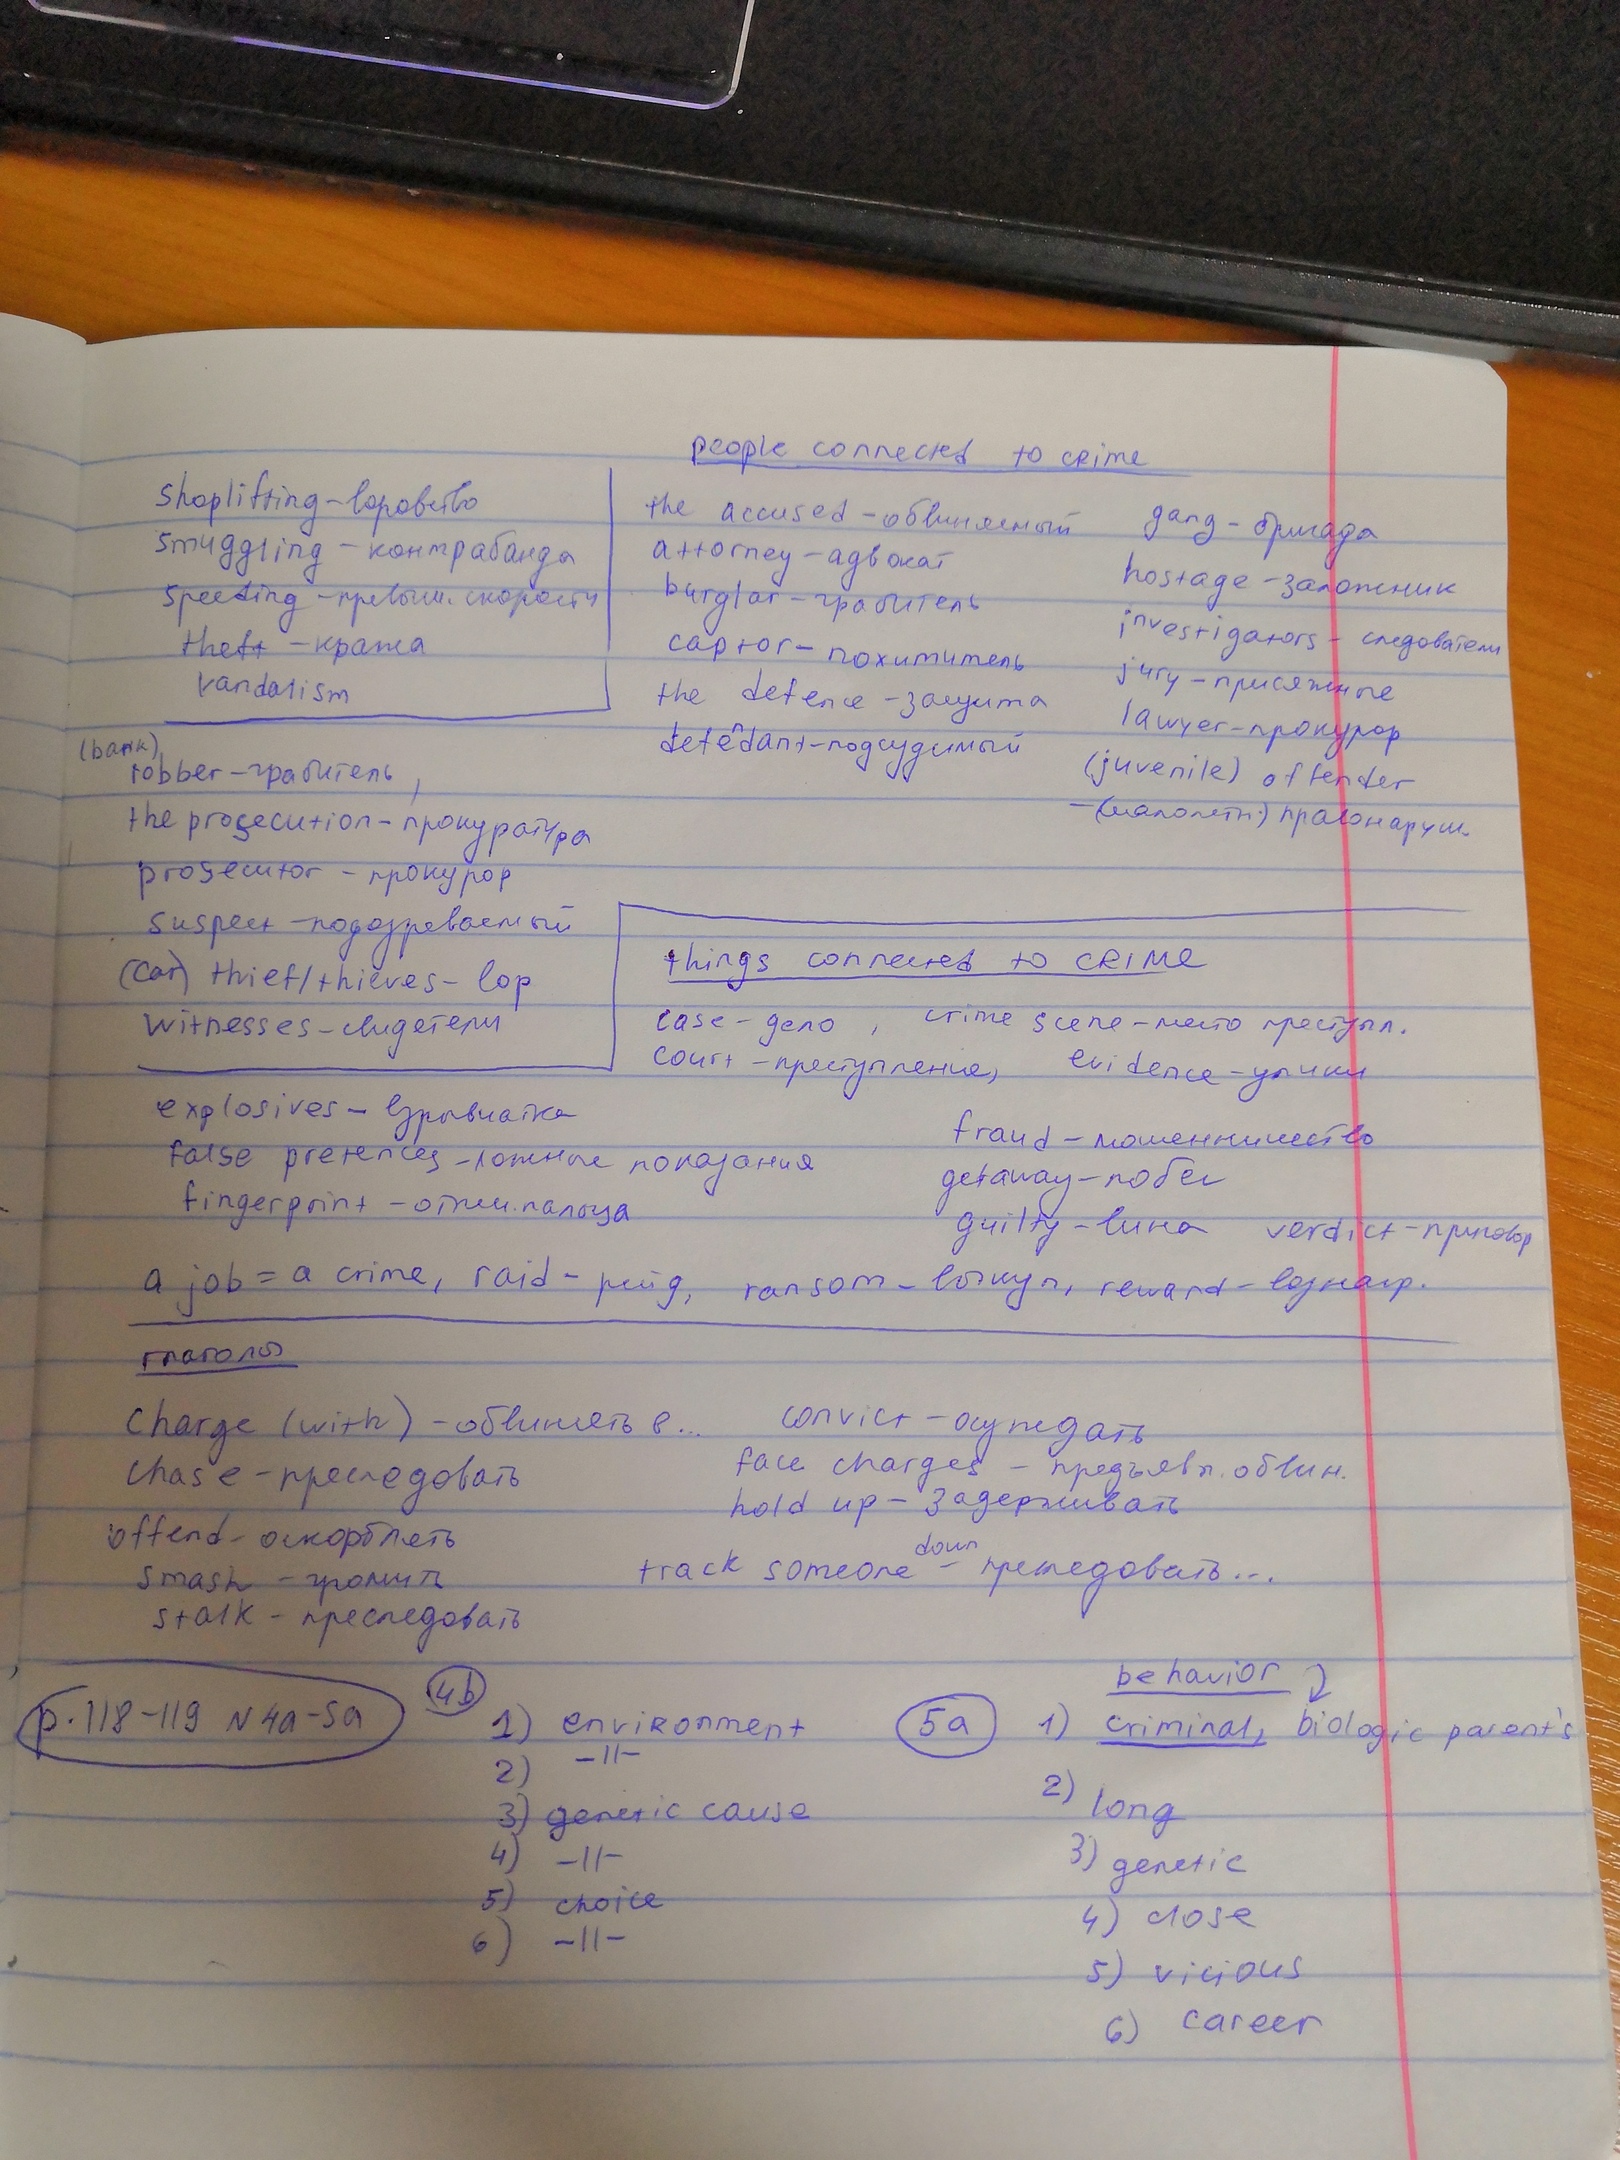 people connected to crime
shoplifting - воровство
smuggling - контрабанда
speeding - превыш. скорости
theft - кража
vandalism
the accused - обвиняемый
attorney - адвокат
burglar - грабитель
captor - похититель
the defence - защита
defedant - подсудимый
gang - бригада
hostage - заложник
investigators - следователи
jury - присяжные
lawyer - прокурор
(juvenile) offender
- (малолетн.) правонаруш.
(bank)
robber - грабитель,
the prosecution - прокуратура
prosecutor - прокурор
suspect - подозреваемый
(car) thief/thieves - вор
witnesses - свидетели
things connected to crime
case - дело, crime scene - место преступл.
court - преступление, evidence - улики
explosives - взрывчатка
false pretences - ложные показания
fingerprint - отпеч. пальца
fraud - мошенничество
getaway - побег
guilty - вина verdict - приговор
a job = a crime, raid - рейд, ransom - выкуп, reward - вознагр.
глаголы
charge (with) - обвинять в... convict - осуждать
chase - преследовать face charges - предъявл. обвин.
hold up - задерживать
offend - оскорблять
down
smash - громить track someone - преследовать...
stalk - преследовать
p. 118-119 N 4a-5a
4b
1) environment
2) -//-
3) genetic cause
4) -//-
5) choice
6) -//-
behavior
5a 1) criminal, biologic parent's
2) long
3) genetic
4) close
5) vicious
6) career